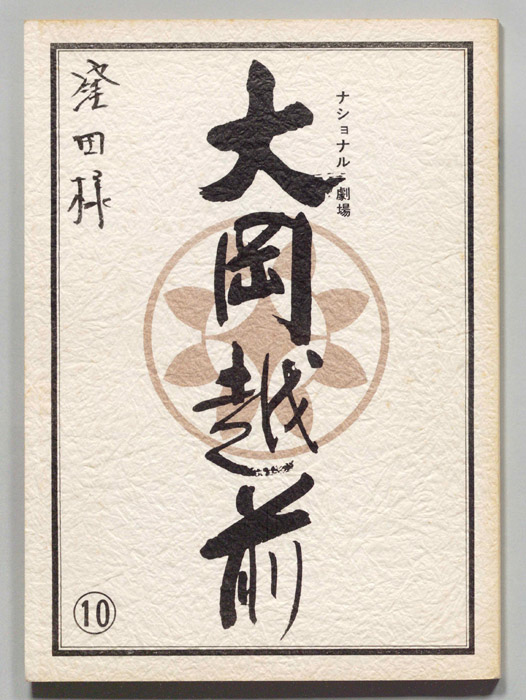 ナショナル劇場
大岡越前
窪田様
⑩